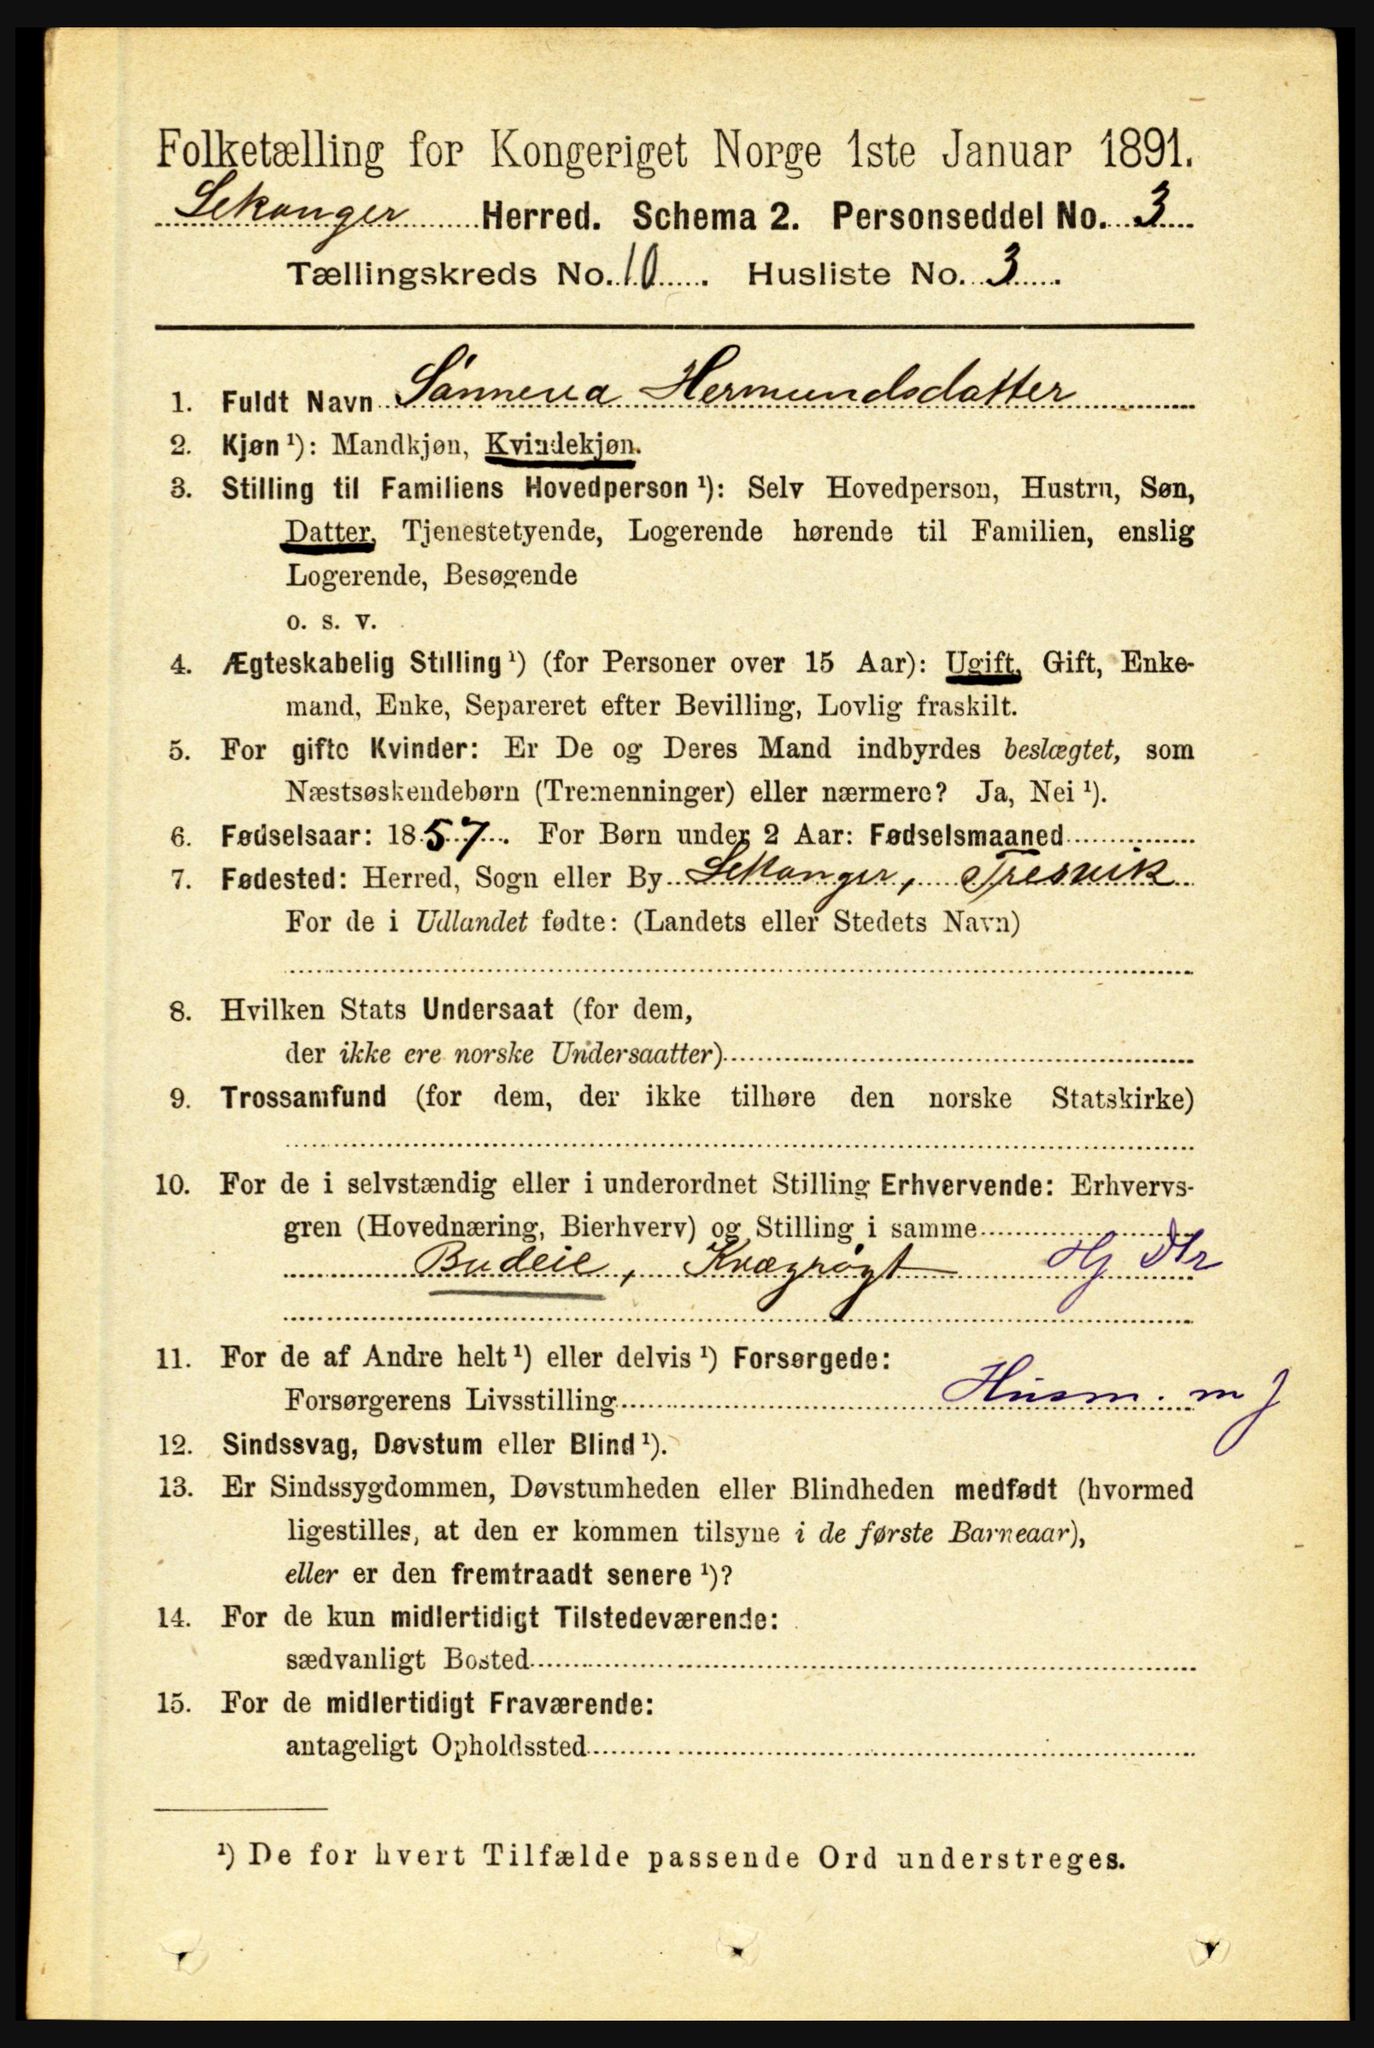 Folketælling for Kongeriget Norge 1ste Januar 1891.
Lekanger Herred. Schema 2. Personseddel No. 3
Tællingskreds No. 10. Husliste No. 3.
1. Fuldt Navn Sønneva Hermundsdatter
2. Kjøn ¹): Mandkjøn, Kvindekjøn.
3. Stilling til Familiens Hovedperson ¹): Selv Hovedperson, Hustru, Søn,
Datter, Tjenestetyende, Logerende hørende til Familien, enslig
Logerende, Besøgende
o. s. v.
4. Ægteskabelig Stilling ¹) (for Personer over 15 Aar): Ugift, Gift, Enke-
mand, Enke, Separeret efter Bevilling, Lovlig fraskilt.
5. For gifte Kvinder: Er De og Deres Mand indbyrdes beslægtet, som
Næstsøskendebørn (Tremenninger) eller nærmere? Ja, Nei ¹).
6. Fødselsaar: 1857. For Børn under 2 Aar: Fødselsmaaned
7. Fødested: Herred, Sogn eller By Lekanger, Fresvik
For de i Udlandet fødte: (Landets eller Stedets Navn)
8. Hvilken Stats Undersaat (for dem,
der ikke ere norske Undersaatter)
9. Trossamfund (for dem, der ikke tilhøre den norske Statskirke)
10. For de i selvstændig eller i underordnet Stilling Erhvervende: Erhvervs-
gren (Hovednæring, Bierhverv) og Stilling i samme
Budeie, Kvægrøgt Hj Dtr
11. For de af Andre helt ¹) eller delvis ¹) Forsørgede:
Forsørgerens Livsstilling Husm. m j
12. Sindssvag, Døvstum eller Blind ¹).
13. Er Sindssygdommen, Døvstumheden eller Blindheden medfødt (hvormed
ligestilles, at den er kommen tilsyne i de første Barneaar),
eller er den fremtraadt senere ¹)?
14. For de kun midlertidigt Tilstedeværende:
sædvanligt Bosted
15. For de midlertidigt Fraværende:
antageligt Opholdssted
¹) De for hvert Tilfælde passende Ord understreges.